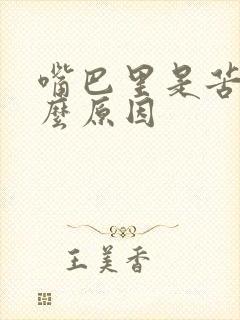 嘴巴里是苦
麼原因
王美香